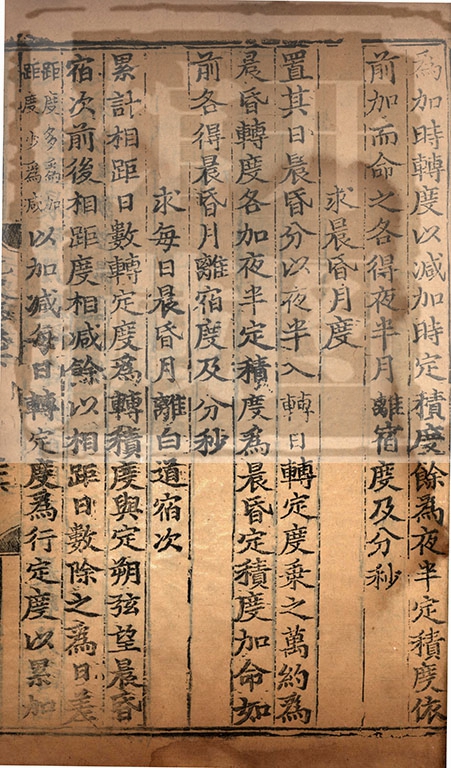 為加時轉度以减加時定積度餘為夜半定積度依
前加而命之各得夜半月離宿度及分秒
求晨昏月度
置其日晨昏分以夜半入轉日轉定度乗之萬約為
晨昏轉度各加夜半定積度為晨昏定積度加命如
前各得晨昏月離宿度及分秒
求每日晨昏月離白道宿次
累計相距日數轉定度為轉積度與定朔弦望晨昏
宿次前後相距度相减餘以相距日數除之為日差
距度多為加
距度少為减
以加减每日轉定度為行定度以累加